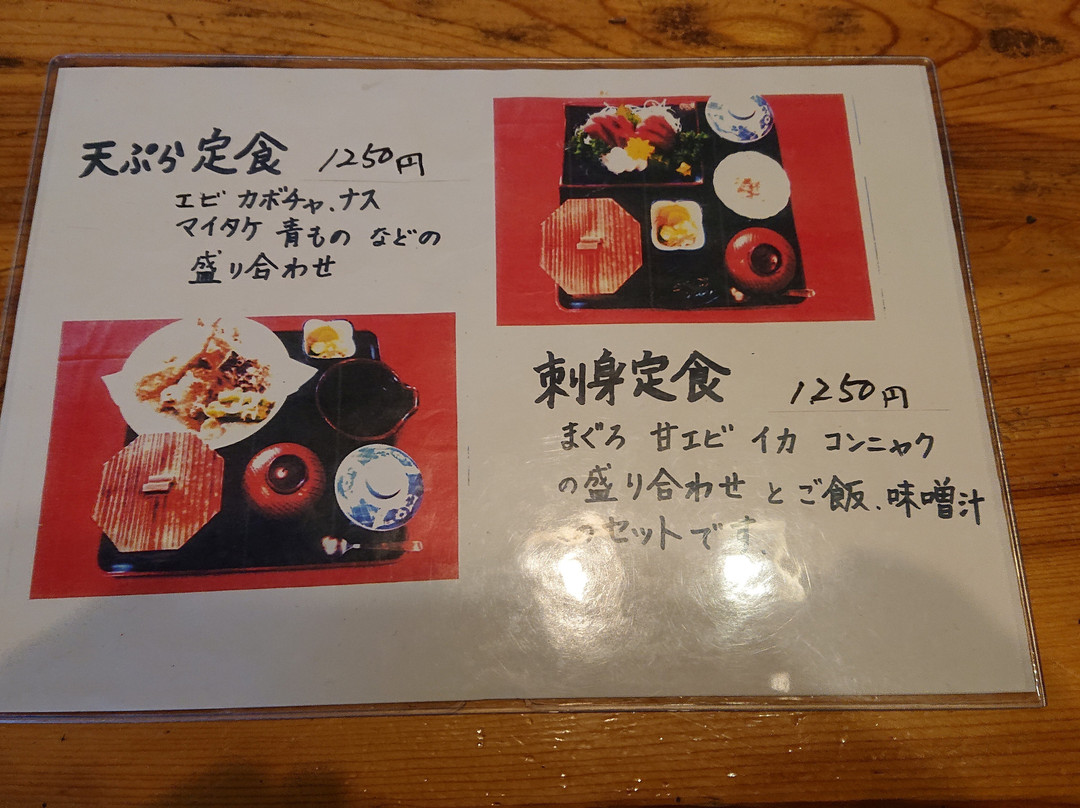 天ぷら定食 1250円
エビ カボチャ、ナス
マイタケ 青もの などの
盛り合わせ
刺身定食 1250円
まぐろ 甘エビ イカ コンニャク
の盛り合わせ とご飯、味噌汁
のセットです。